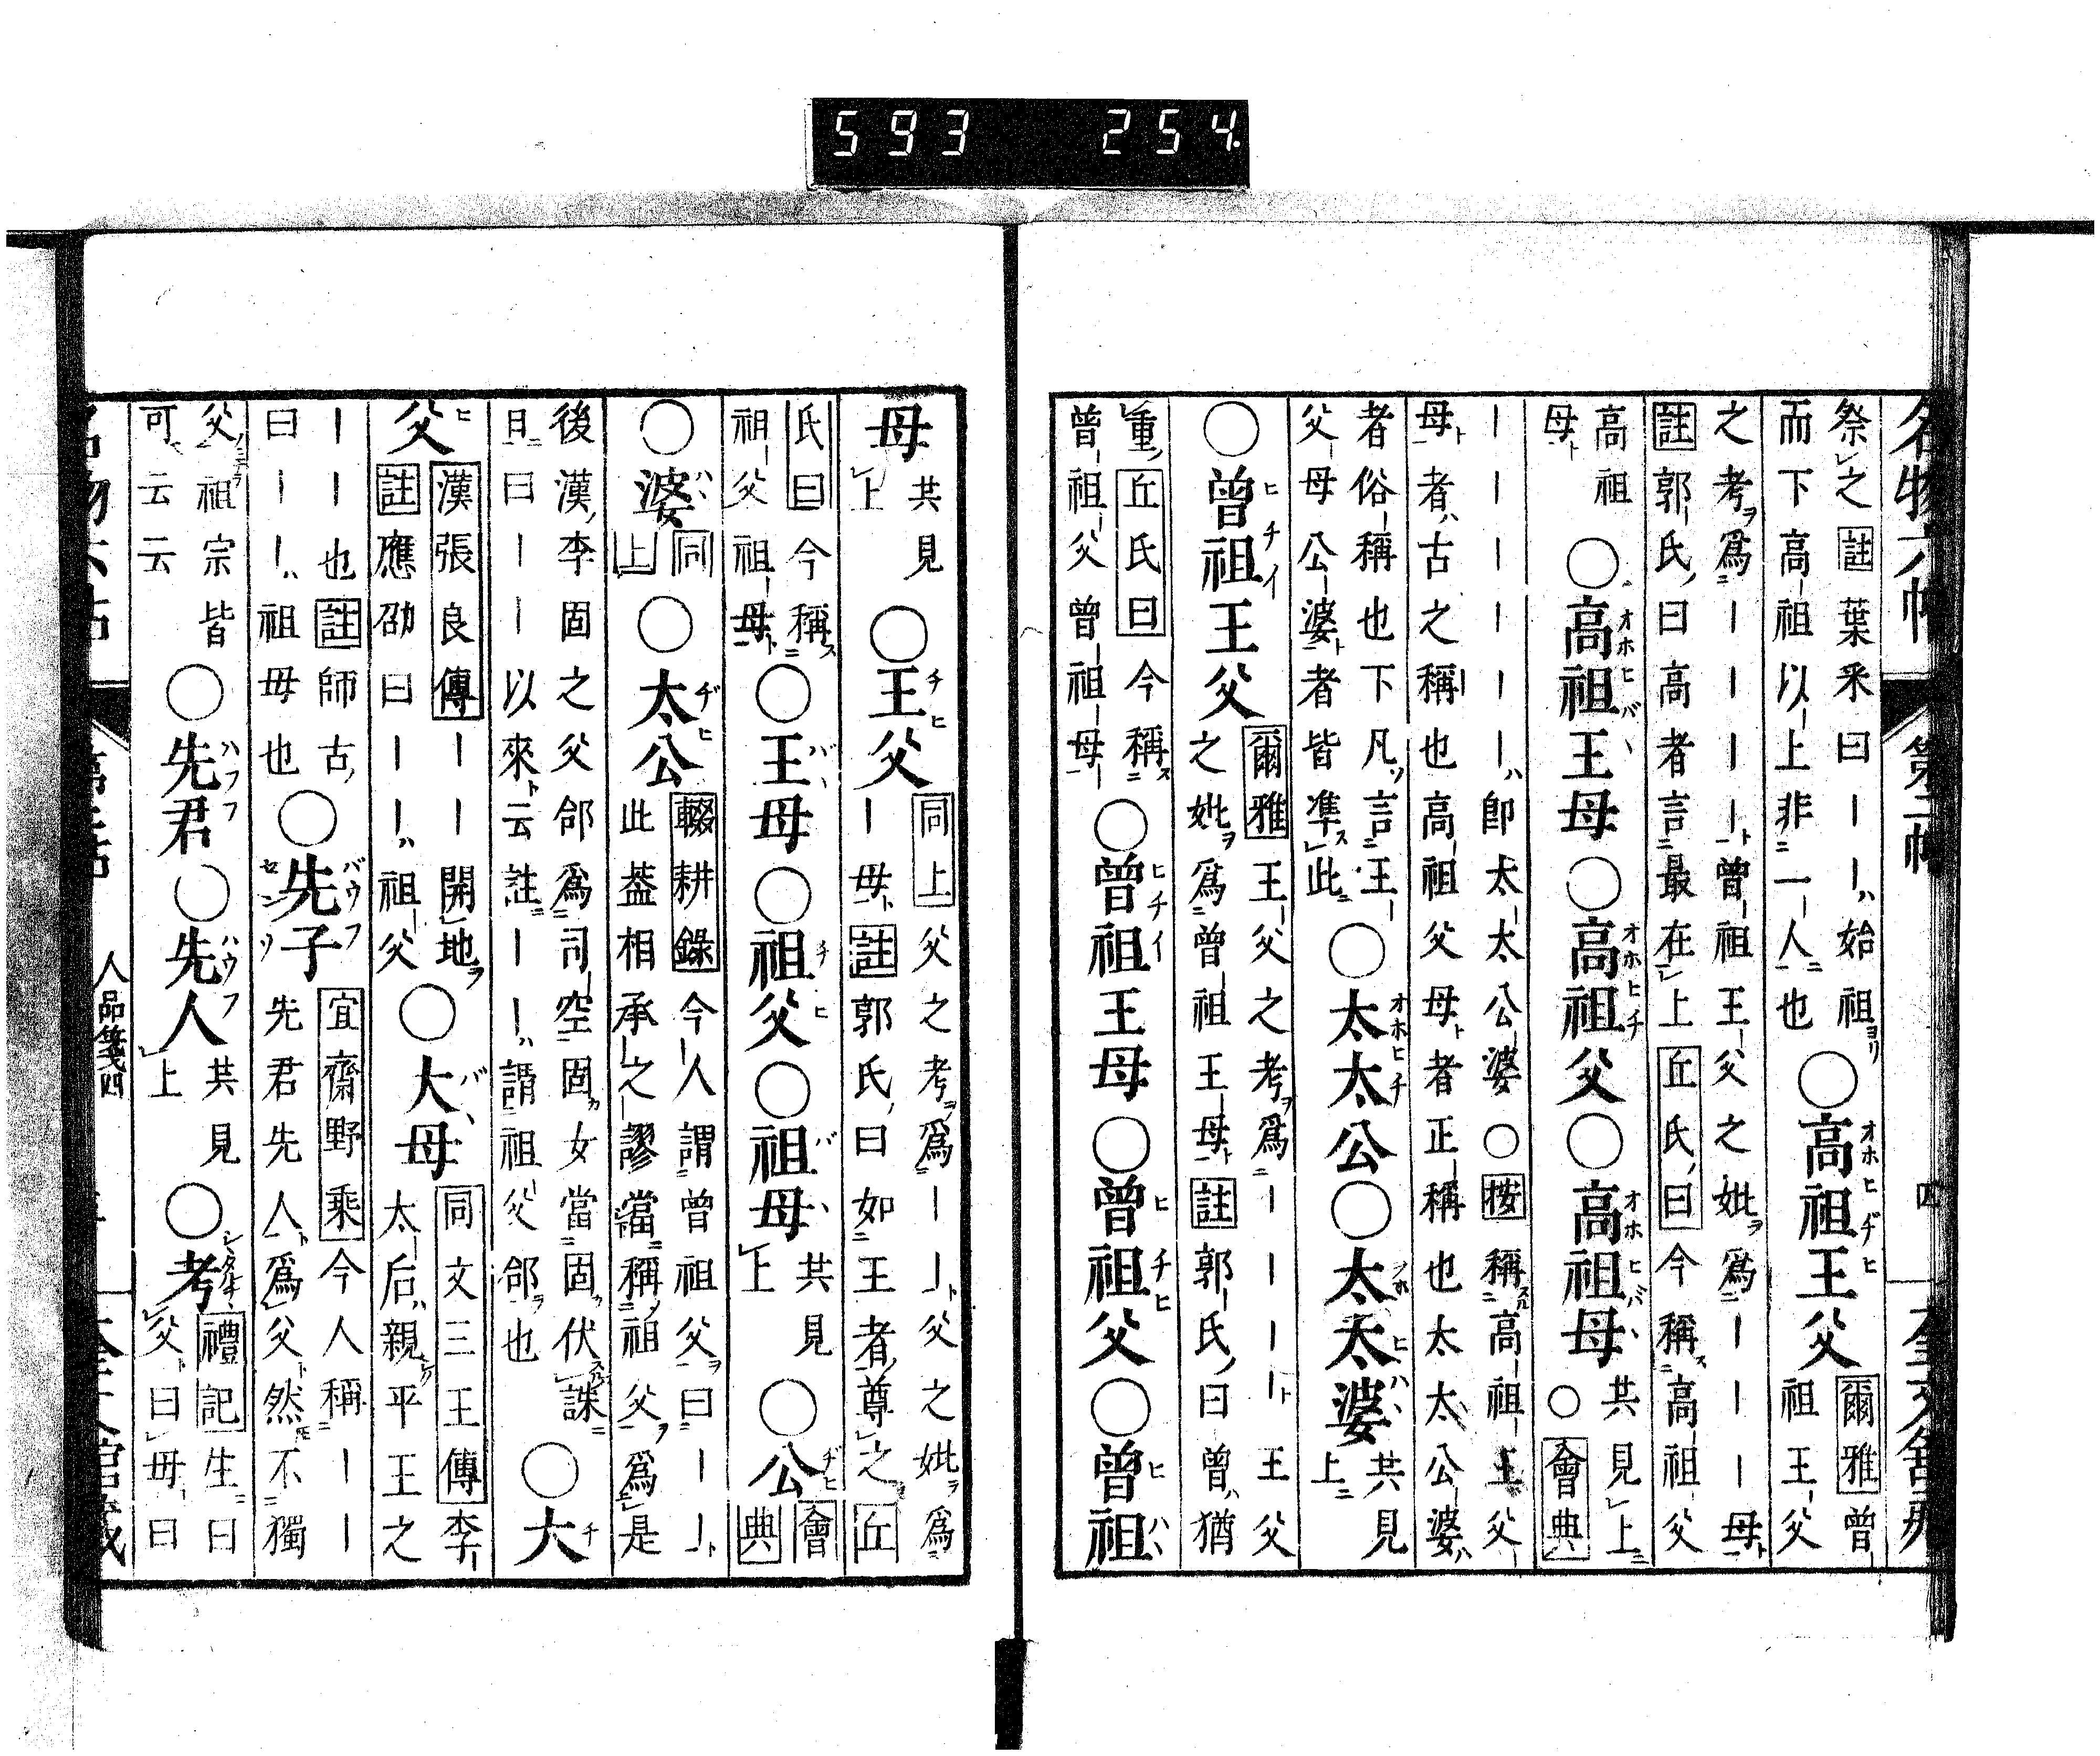 593 254
名物六帖 第二帖 四 奎文舘
祭之註葉釆曰｜｜始祖
而下高祖以上非一人也
○高祖王父爾雅曾
祖王父
之考爲｜｜｜｜曾祖王父之妣爲｜｜｜｜母
註郭氏曰高者言最在上丘氏曰今稱高祖父
高祖
母
○高祖王母○高祖父○高祖母共見
上○會典
｜｜｜｜｜｜卽太太公婆○按稱高祖王父
母者古之稱也高祖父母者正稱也太太公婆
者俗稱也下凡言王
父母公婆者皆準此
○太太公○太太婆共見
上
○曾祖王父爾雅王父之考爲｜｜｜｜王父
之妣爲曾祖王母註郭氏曰曾猶
重丘氏曰今稱
曾祖父曾祖母
○曾祖王母○曾祖父○曾祖
母共見
上
○王父同上父之考爲｜｜父之妣爲
｜母註郭氏曰如王者尊之丘
氏曰今稱
祖父祖母
○王母○祖父○祖母共見
上
○公會
典
○婆同
上
○太公輟耕錄今人謂曾祖父曰｜｜
此葢相承之謬當稱祖父爲是
後漢李固之父郃爲司空固女當固伏誅
且曰｜｜以來云註｜｜謂祖父郃也
○大
父漢張良傳｜｜開地
註應劭曰｜｜祖父
○大母同文三王傳李
太后親平王之
｜｜也註師古
曰｜｜祖母也
○先子宜齋野乘今人稱｜｜
先君先人爲父然不獨
父祖宗皆
可云云
○先君○先人共見
上
○考禮記生曰
父曰母曰
人品箋四